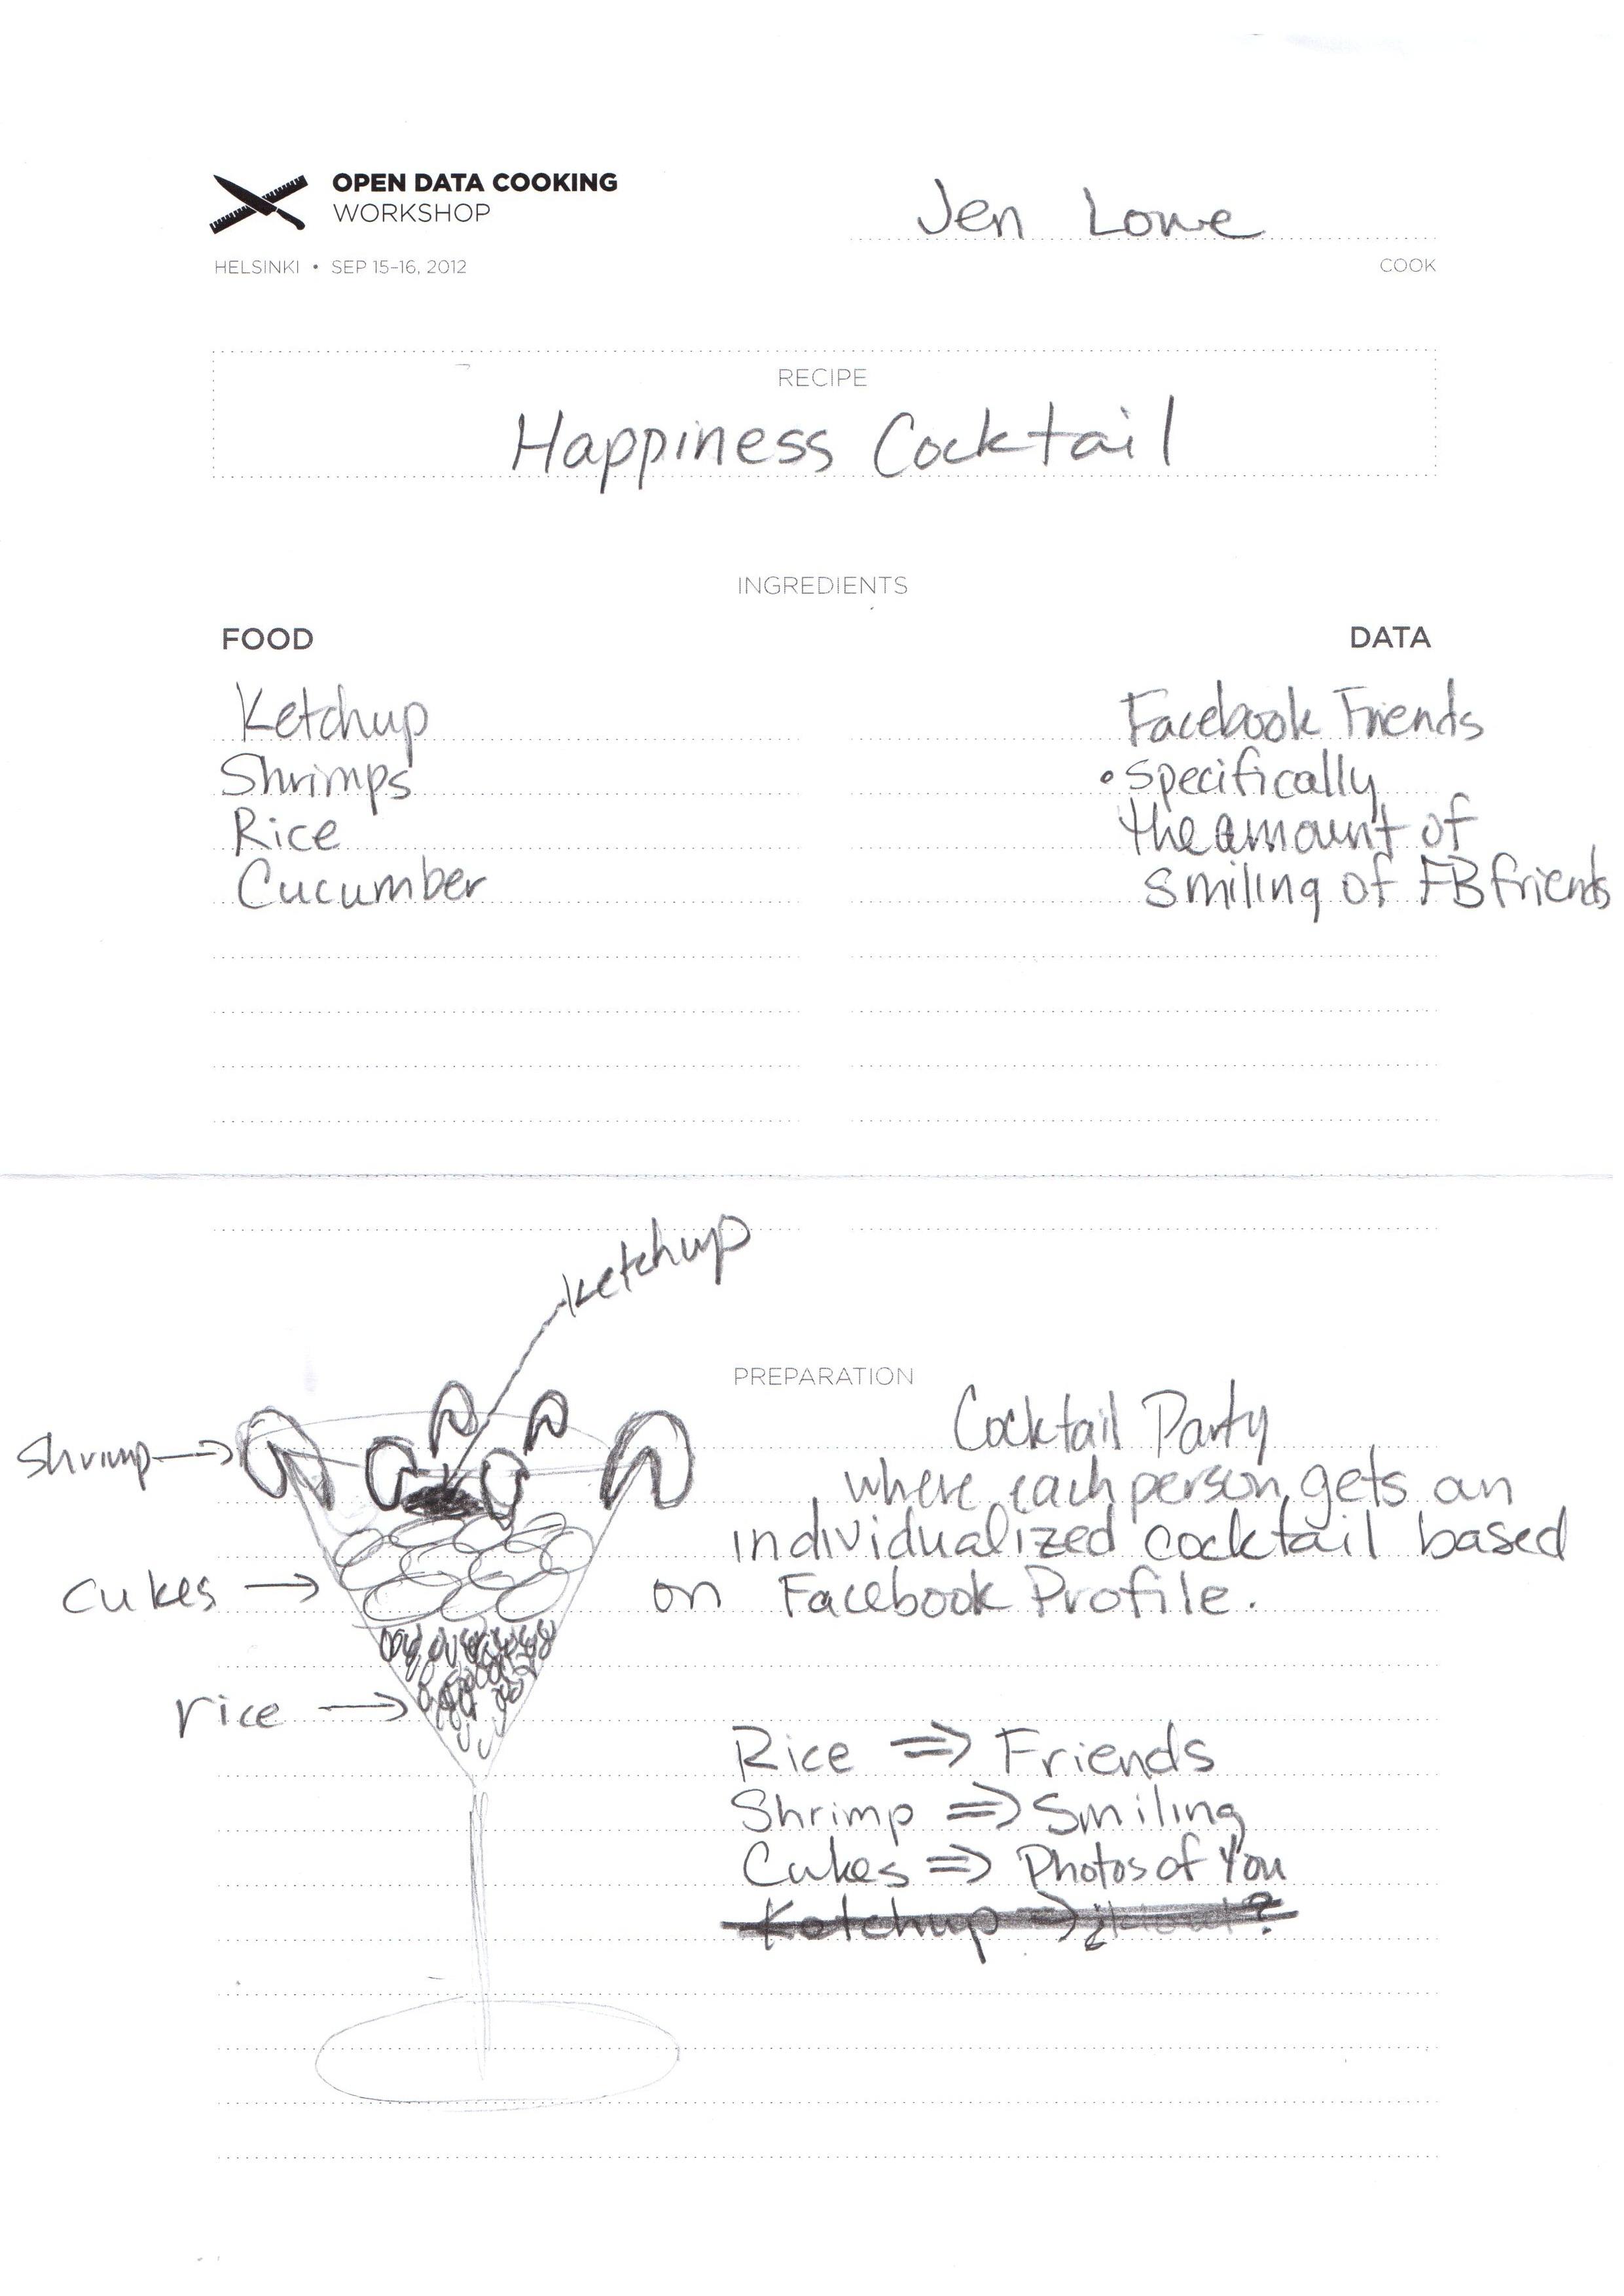 OPEN DATA COOKING
WORKSHOP
HELSINKI • SEP 15–16, 2012
Jen Lowe
COOK
RECIPE
Happiness Cocktail
INGREDIENTS
FOOD
Ketchup
Shrimps
Rice
Cucumber
DATA
Facebook Friends
• Specifically
the amount of
smiling of FB friends
ketchup
shrimp →
cukes →
rice →
PREPARATION
Cocktail Party
where each person gets an
individualized cocktail based
on Facebook Profile.
Rice ⇒ Friends
Shrimp ⇒ Smiling
Cukes ⇒ Photos of You
Ketchup ⇒ ?